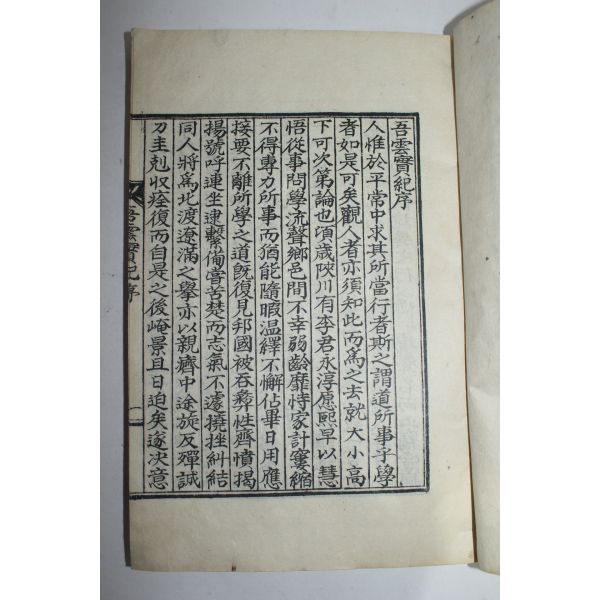 吾雲實紀序
人惟於平常中求其所當行者斯之謂道所事乎學
者如是可矣觀人者亦須知此而爲之去就大小高
下可次第論也頃歲陜川有李君永淳愿熙早以慧
悟從事問學流聲鄉邑間不幸弱齡靡恃家計窶縮
不得專力所事而猶能隨暇溫繹不懈佔畢日用應
接要不離所學之道旣復見邦國被吞彝性齊憤揭
揚號呼連坐逮繫備嘗苦楚而志氣不遽撓挫糾結
同人將爲北渡遼滿之擧亦以親癠中途旋反殫誠
刀圭剋收痊復而自是之後崦景且日迫矣遂决意
吾雲實紀序
一